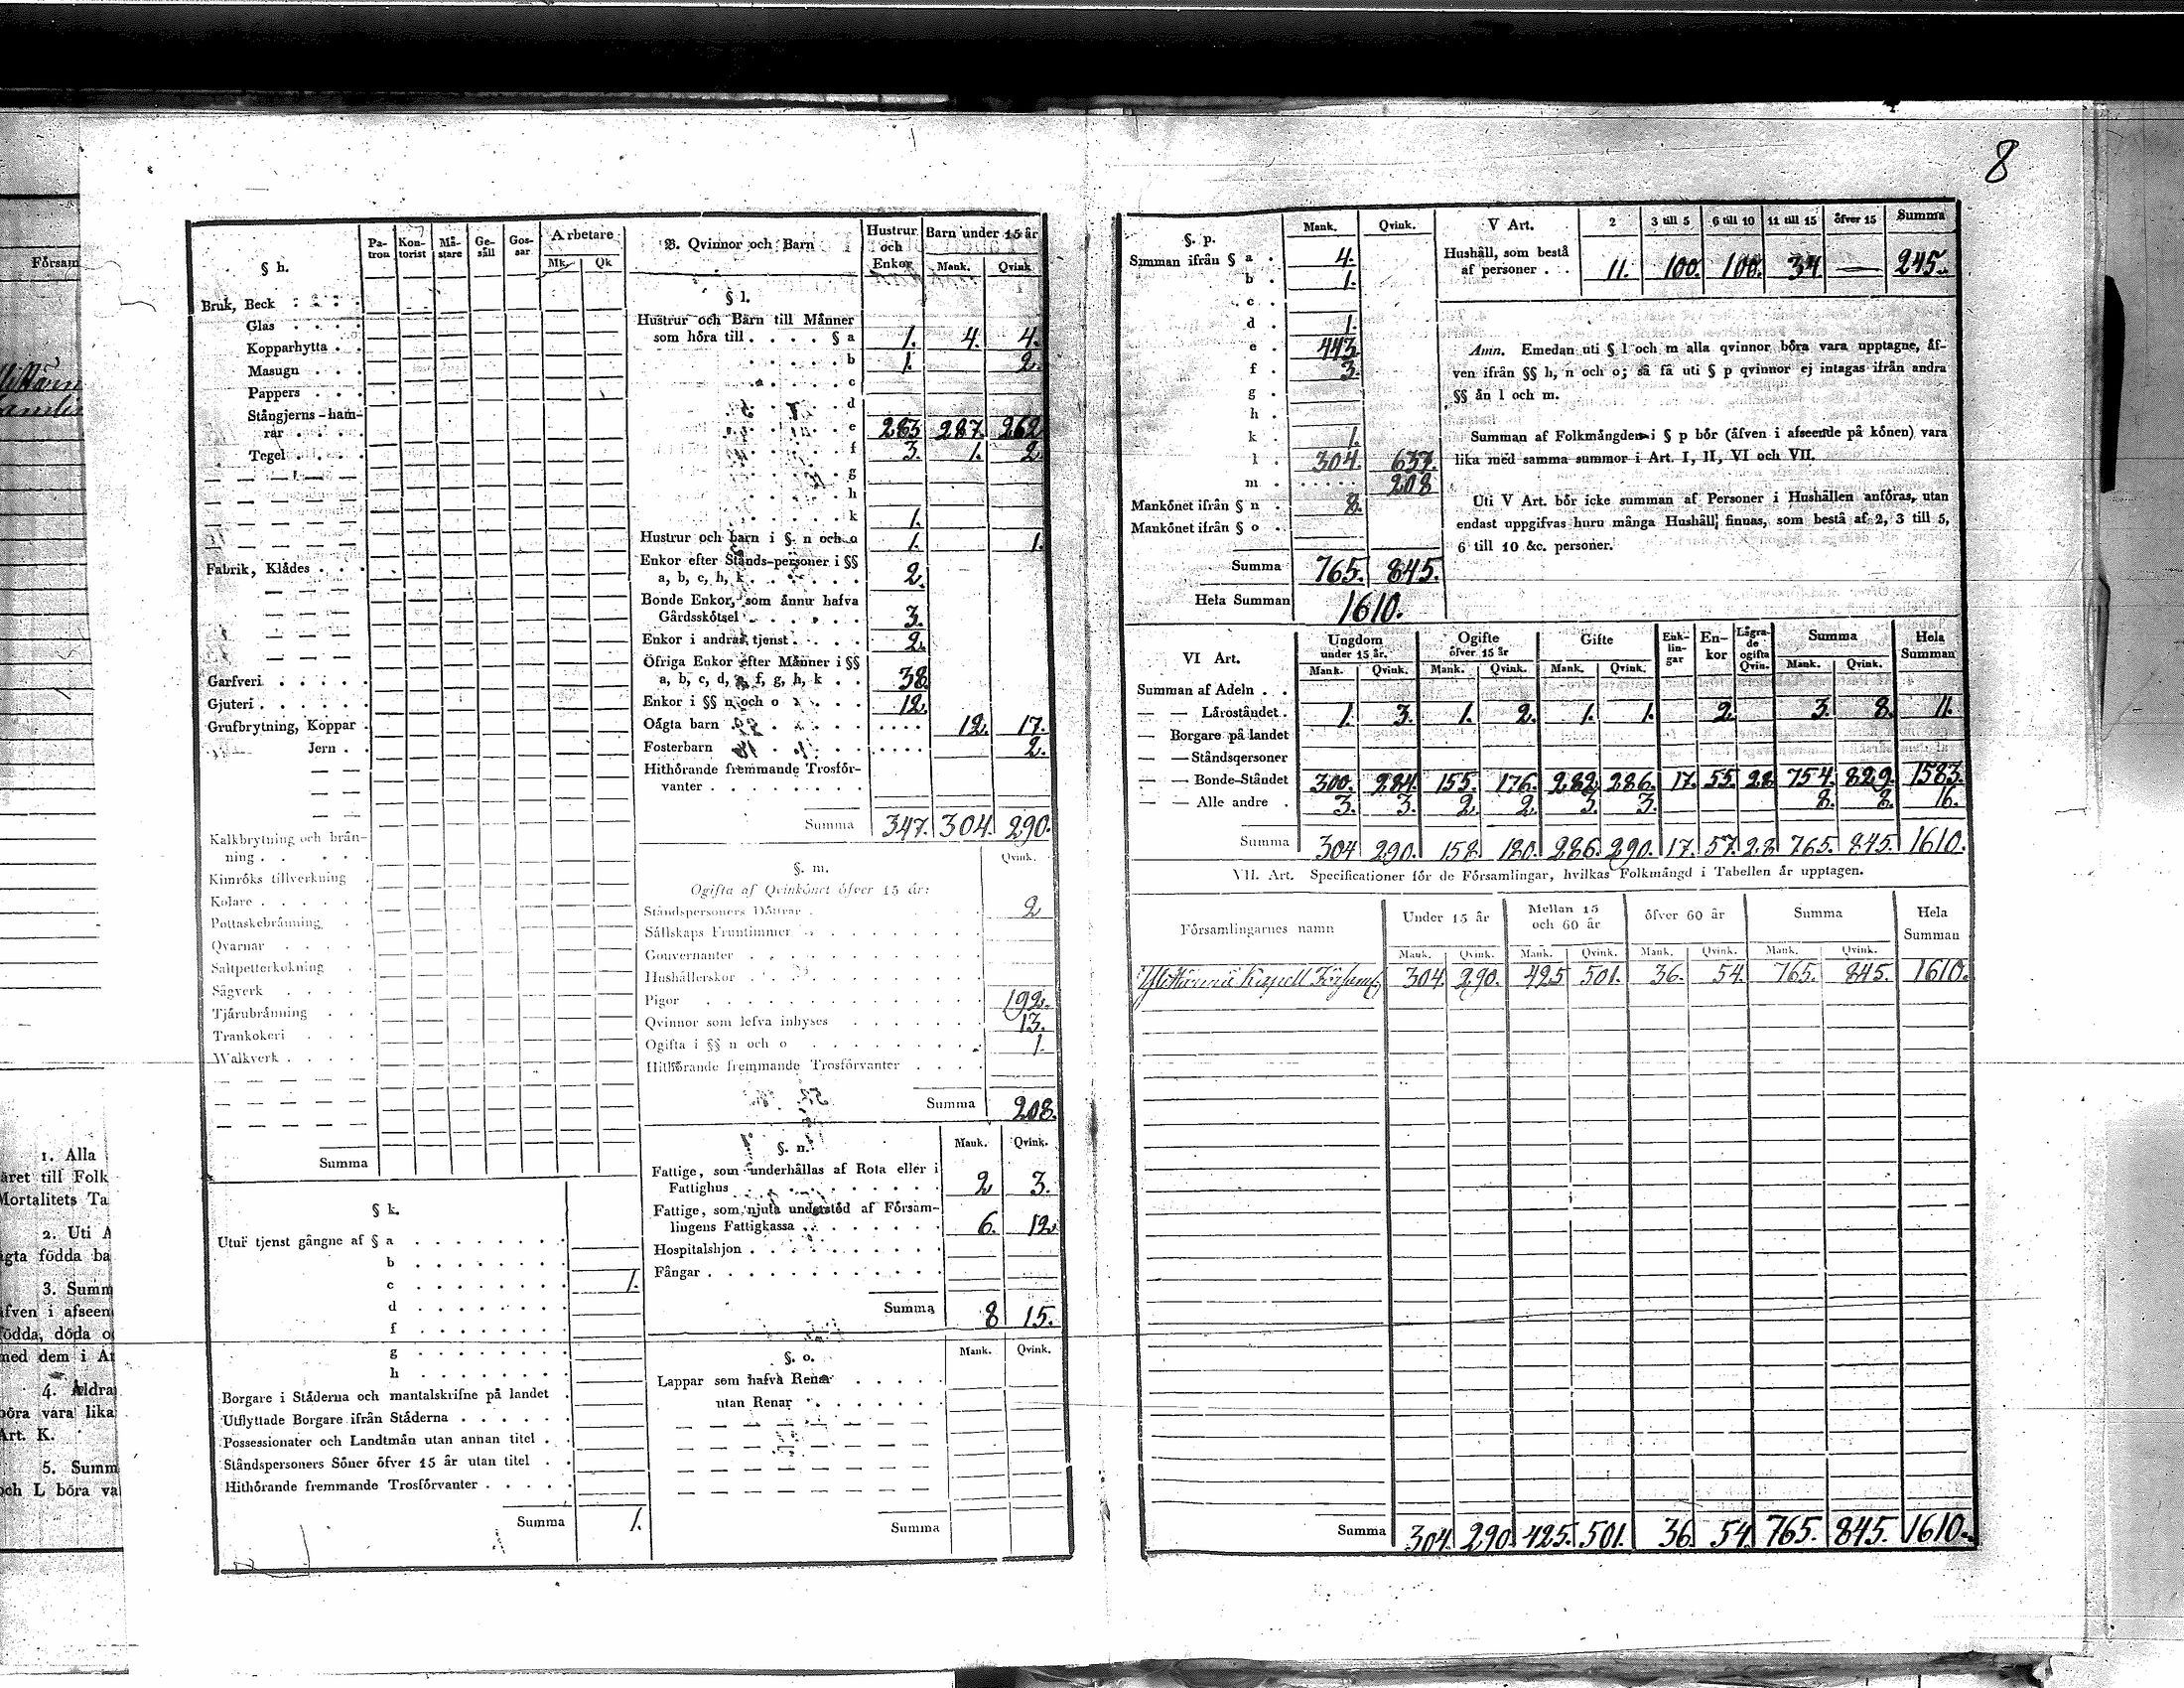 8
Försam
1. Alla
året till Folk
Mortalitets Ta
2. Uti A
ägta födda ba
3. Summ
äfven i afseen
födda, döda o
med dem i Ar
4. Åldra
böra vara lika
Art. K.
5. Summ
och L böra va
§ h. Pa-tron Kon-torist Mä-stare Ge-säll Gos-sar Arbetare Mk. Qk
Bruk, Beck
Glas
Kopparhytta
Masugn
Pappers
Stångjerns-ham-
rar
Tegel
Fabrik, Klådes
Garfveri
Gjuteri
Grufbrytning, Koppar
Jern
Kalkbrytning och brän-
ning
Kimröks tillverkning
Kolare
Pottaskebränning
Qvarnar
Saltpetterkokning
Sågverk
Tjärubränning
Trankokeri
Walkverk
Summa
§ k.
Utur tjenst gångne af § a
b
c 1.
d
f
g
h
Borgare i Städerna och mantalskrifne på landet
Utflyttade Borgare ifrån Städerna
Possessionater och Landtmän utan annan titel
Ståndspersoners Söner öfver 15 år utan titel
Hithörande fremmande Trosförvanter
Summa 1.
B. Qvinnor och Barn Hustrur och Enkor Barn under 15 år Mank. Qvink
§ l.
Hustrur och Barn till Männer
som höra till § a 1. 4. 4.
b 1. 2.
c
d
e 283 287. 262
f 3. 1. 2.
g
h
k 1.
Hustrur och barn i §. n och o 1. 1.
Enkor efter Stånds-personer i §§
a, b, c, h, k 2.
Bonde Enkor, som ännu hafva
Gårdsskötsel 3.
Enkor i andras tjenst 2.
Öfriga Enkor efter Männer i §§
a, b, c, d, e, f, g, h, k 38.
Enkor i §§ n och o 12.
Oägta barn 12. 17.
Fosterbarn 2.
Hithörande fremmande Trosför-
vanter
Summa 347. 304. 290.
§. m. Qvink.
Ogifta af Qvinkönet öfver 15 år:
Ståndspersoners Döttrar 2
Sällskaps Fruntimmer
Gouvernanter
Hushållerskor
Pigor 192.
Qvinnor som lefva inhyses 13.
Ogifta i §§ n och o 1.
Hithörande fremmande Trosförvanter
Summa 208.
§. n. Mank. Qvink.
Fattige, som underhållas af Rota eller i
Fattighus 2 3.
Fattige, som njuta understöd af Församlingens
Fattigkassa 6. 12
Hospitalshjon
Fångar
Summa 8 15.
§. o. Mank. Qvink.
Lappar som hafva Renar
utan Renar
Summa
§. p. Mank. Qvink.
Summan ifrån § a 4.
b 1.
c
d 1.
e 443.
f 3.
g
h
k 1.
l 304. 637.
m 208
Mankönet ifrån § n 8.
Mankönet ifrån § o
Summa 765. 845.
Hela Summan 1610.
V Art. 2 3 till 5 6 till 10 11 till 15 öfver 15 Summa
Hushåll, som bestå
af personer 11. 100. 100. 34 — 245.
Anm. Emedan uti § l och m alla qvinnor böra vara upptagne, äf-
ven ifrån §§ h, n och o; så få uti § p qvinnor ej intagas ifrån andra
§§ än l och m.
Summan af Folkmängden i § p bör (äfven i afseende på könen) vara
lika med samma summor i Art. I, II, VI och VII.
Uti V Art. bör icke summan af Personer i Hushållen anföras, utan
endast uppgifvas huru många Hushåll finnas, som bestå af 2, 3 till 5,
6 till 10 &c. personer.
VI Art. Ungdom under 15 år. Ogifte öfver 15 år Gifte Enk-lin-gar En-kor Lägra-de ogifta Qvin. Summa Hela Summan
Mank. Qvink. Mank. Qvink. Mank. Qvink. Mank. Qvink.
Summan af Adeln
— — Läroståndet 1. 3. 1. 2. 1. 1. 2. 3. 8. 11.
— Borgare på landet
— — Ståndsqersoner
— — Bonde-Ståndet 300. 284. 155. 176. 282. 286. 17. 55. 28 754. 829. 1583.
— — Alle andre 3. 3. 2. 2. 3. 3. 8. 8. 16.
Summa 304 290. 158. 180. 286. 290. 17. 57. 28 765. 845. 1610.
VII. Art. Specificationer för de Församlingar, hvilkas Folkmängd i Tabellen är upptagen.
Församlingarnes namn Under 15 år Mellan 15 och 60 år öfver 60 år Summa Hela Summan
Mank. Qvink. Mank. Qvink. Mank. Qvink. Mank. Qvink.
Ylistaro Kapell Församl. 304. 290. 425 501. 36. 54. 765. 845. 1610.
Summa 304. 290. 425. 501. 36. 54. 765. 845. 1610.